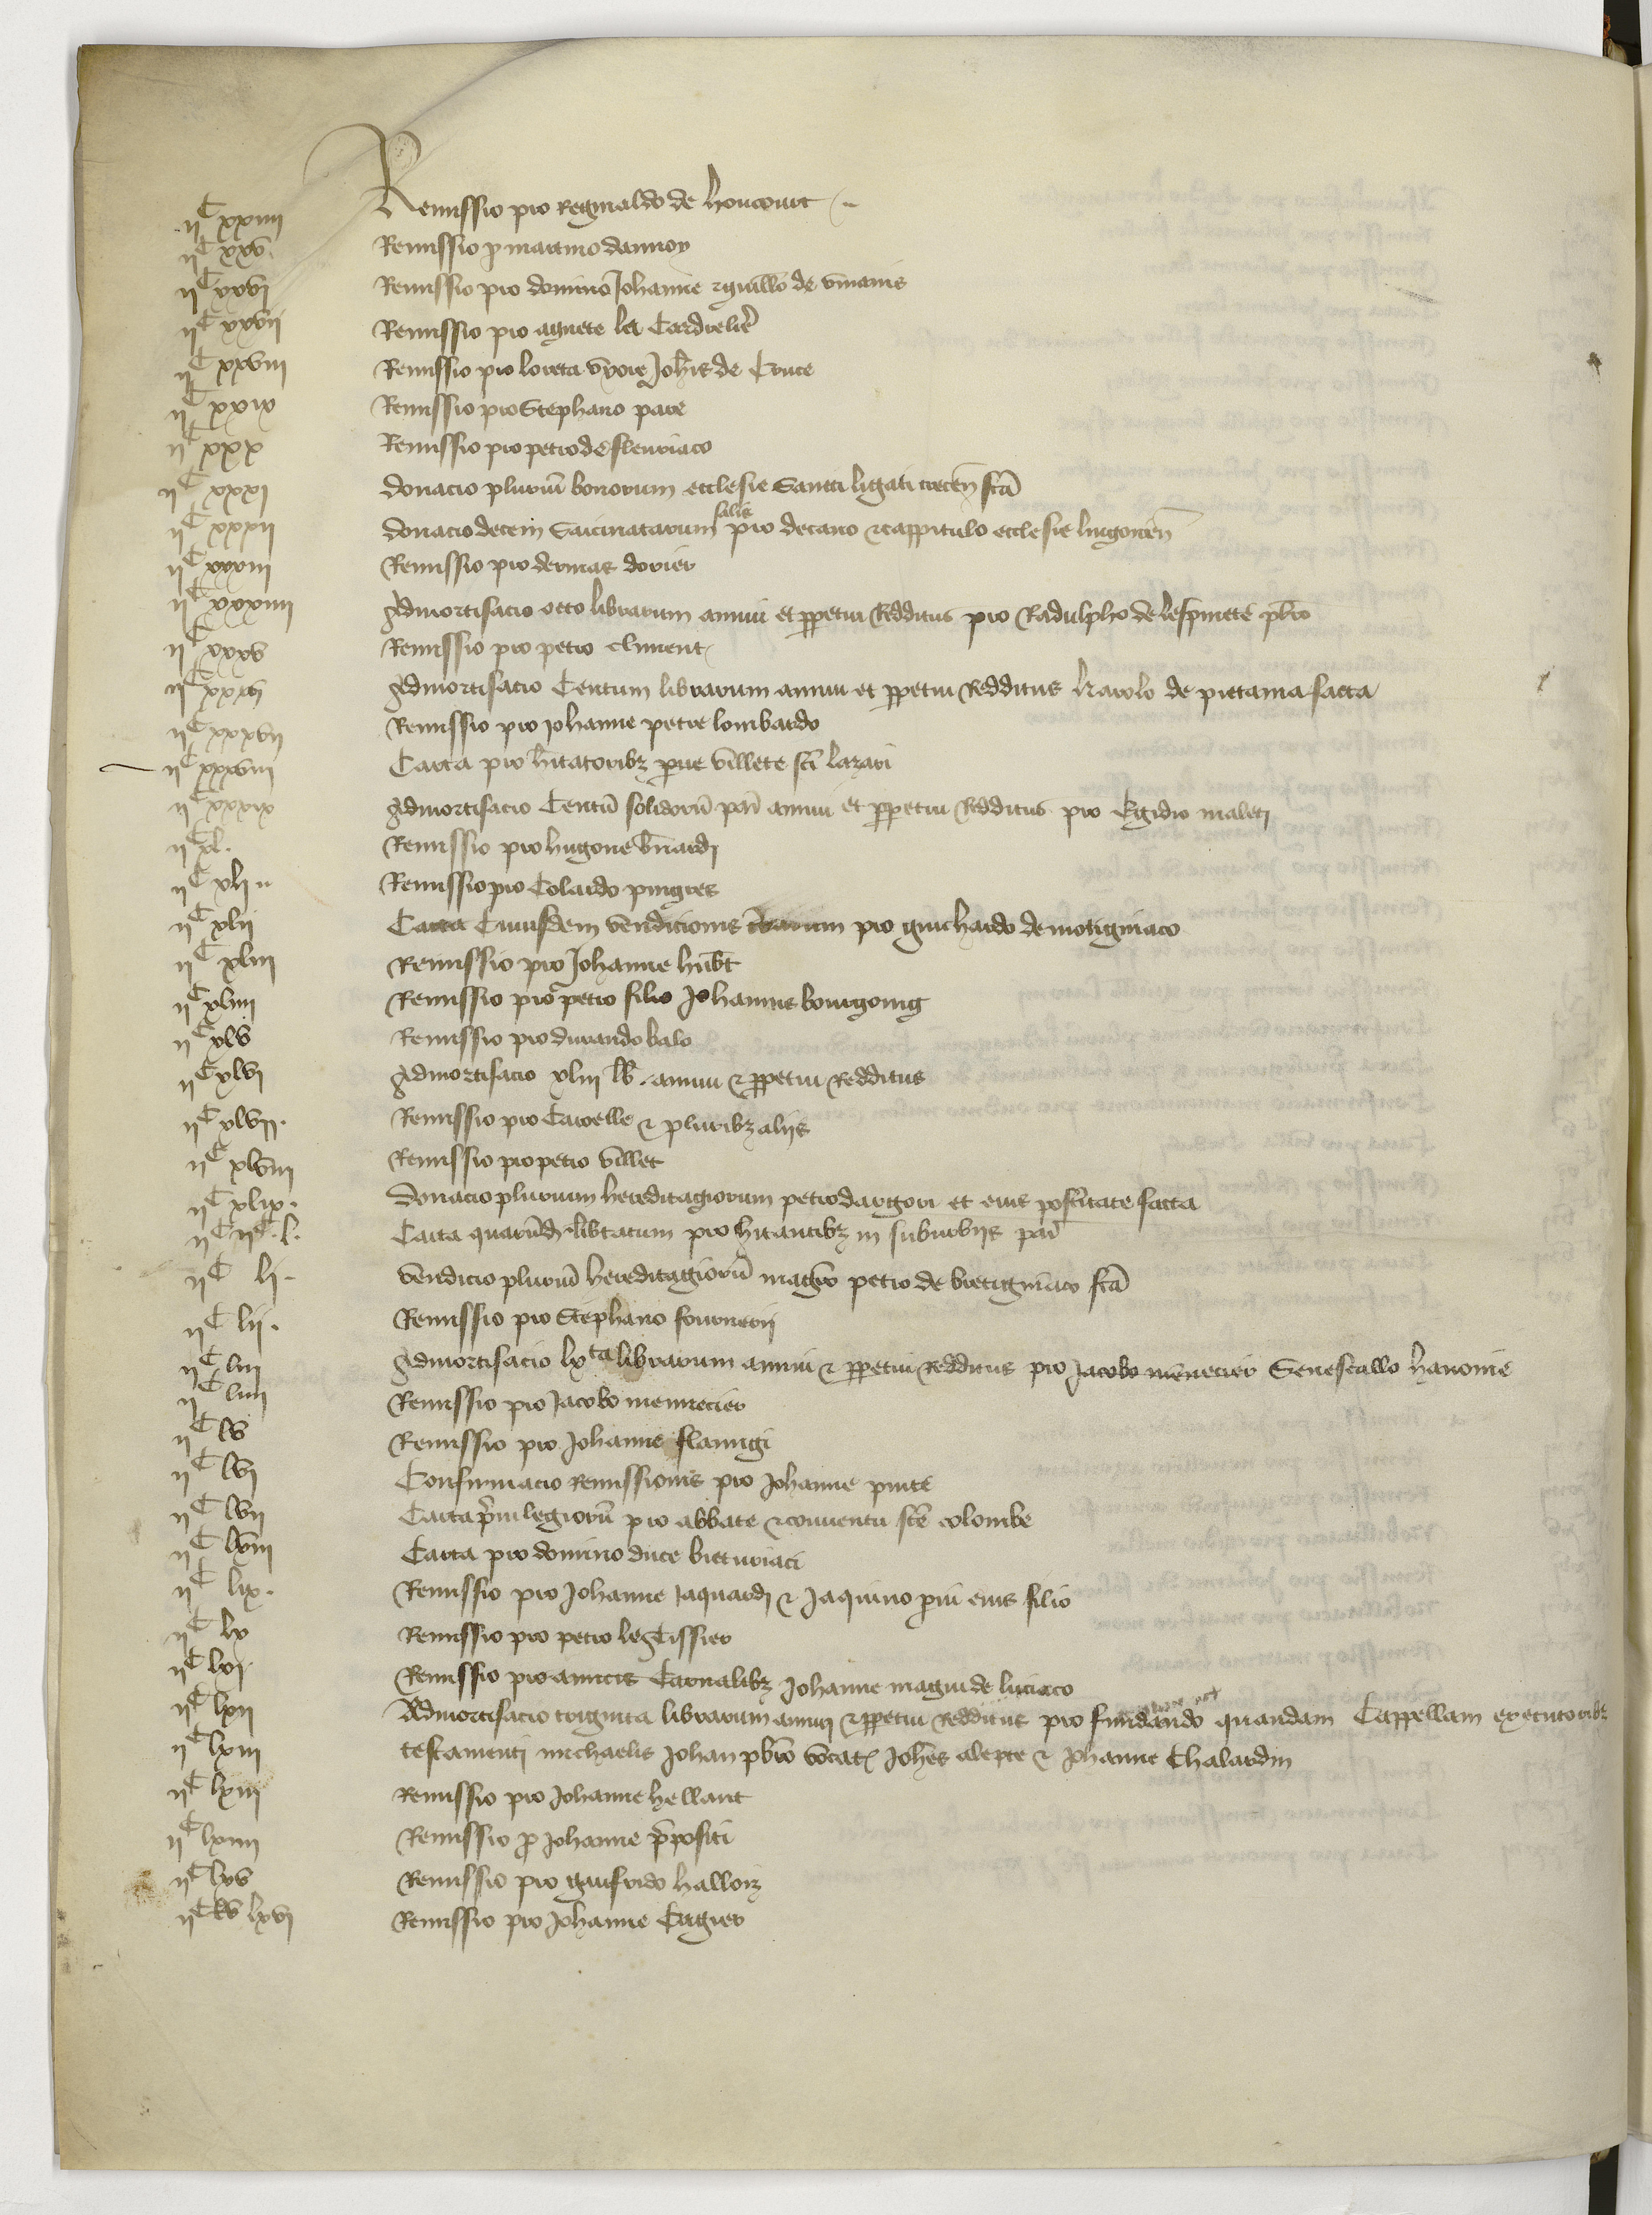 .IIC xxiiii Remissio pro Reginaldo de houcourt
IIC xxv. Remissio p martino dannoy
IIC xxvi Remissio pro domino Johanne et guillo de vinanis
IIC xxvii Remissio pro agnete la Cordeliere
IIC xxviii Remissio pro loreta uxore Johis de Cruce
IIC xxix Remissio pro Stephano pare
IIC xxx Remissio pro petro de fleuriaco
IIC xxxi donacio plurium bonorum ecclesie Sancti ligati trecen fca
IIC xxxii donacio decem Saicinatarum salis pro decano et cappitulo ecclesie lingonen
IIC xxxiii Remissio pro dorier
IIC xxxiiii Admortisacio octo librarum annui et ppetui Redditus pro Radulpho de lespinete pbro
IIC xxxv Remissio pro petro climent
IIC xxxvi Admortisacio Centum librarum annui et ppetui Redditus karolo de pictania facta
IIC xxxvii Remissio pro Johanne petre lombardo
IIC xxxviii Carta pro hitatoribz pue villete sci lazari
IIC xxxix Admortisacio Centu solidoru par annui et ppetui Redditus pro Egidio maleti
IIC xl. Remissio pro hugone bnardi
IIC xli Remissio pro Colardo pingres
IIC xlii Carta Cuiusdem vendicionis pro guichardo de motigniaco
IIC xliii Remissio pro Johanne hubt
IIC xliiii Remissio pro petro filio Johannis bourgoing
IIC xlv Remissio pro durando balo
IIC xlvi Admortisacio xliii lb. annui et ppetui Redditus
IIC xlvii. Remissio pro Caroelle et pluribz aliis
IIC xlviii Remissio pro petro villet
IIC xlix. Donacio plurium hereditagiorum petro dargori et eius posteritate facta
IIC IIC. l. Carta quarudam libtatum pro hitantibz in suburbiis par
IIC li. Vendicio pluriu hereditagioru magro petro de bretigniaco fca
IIC lii. Remissio pro Stephano fournerii
IIC liii Admortisacio lxta librarum annui et ppetui Redditus pro Jacobo menecier Senescallo hanonie
IIC liiii Remissio pro Jacobo mennecier
IIC lv Remissio pro Johanne flamigi
IIC lvi Confirmacio remissionis pro Johanne pinte
IIC lvii Carta privilegioru pro abbate et conventu sce colombe
IIC lviii Carta pro domino duce bitturiaci
IIC lix. Remissio pro Johanne Jaquardi et Jaquino pui eius filio
IIC lx Remissio pro petro le Tissier
IIC lxi Remissio pro amicis Carnalibz Johanne magni de luciaco
IIC lxii Admortisacio triginta librarum annui et ppetui redditus pro fundando quandam Cappellam executoribz
IIC lxiii testamenti michaelis Johan pbro vocat Johes alepee et Johanne Chalardin
IIC lxiii Remissio pro Johanne hellant
IIC lxiiii Remissio pro Johanne ppositi
IIC lxv Remissio pro gaufrido halloiz
IIC lxvi Remissio pro Johanne Cagier